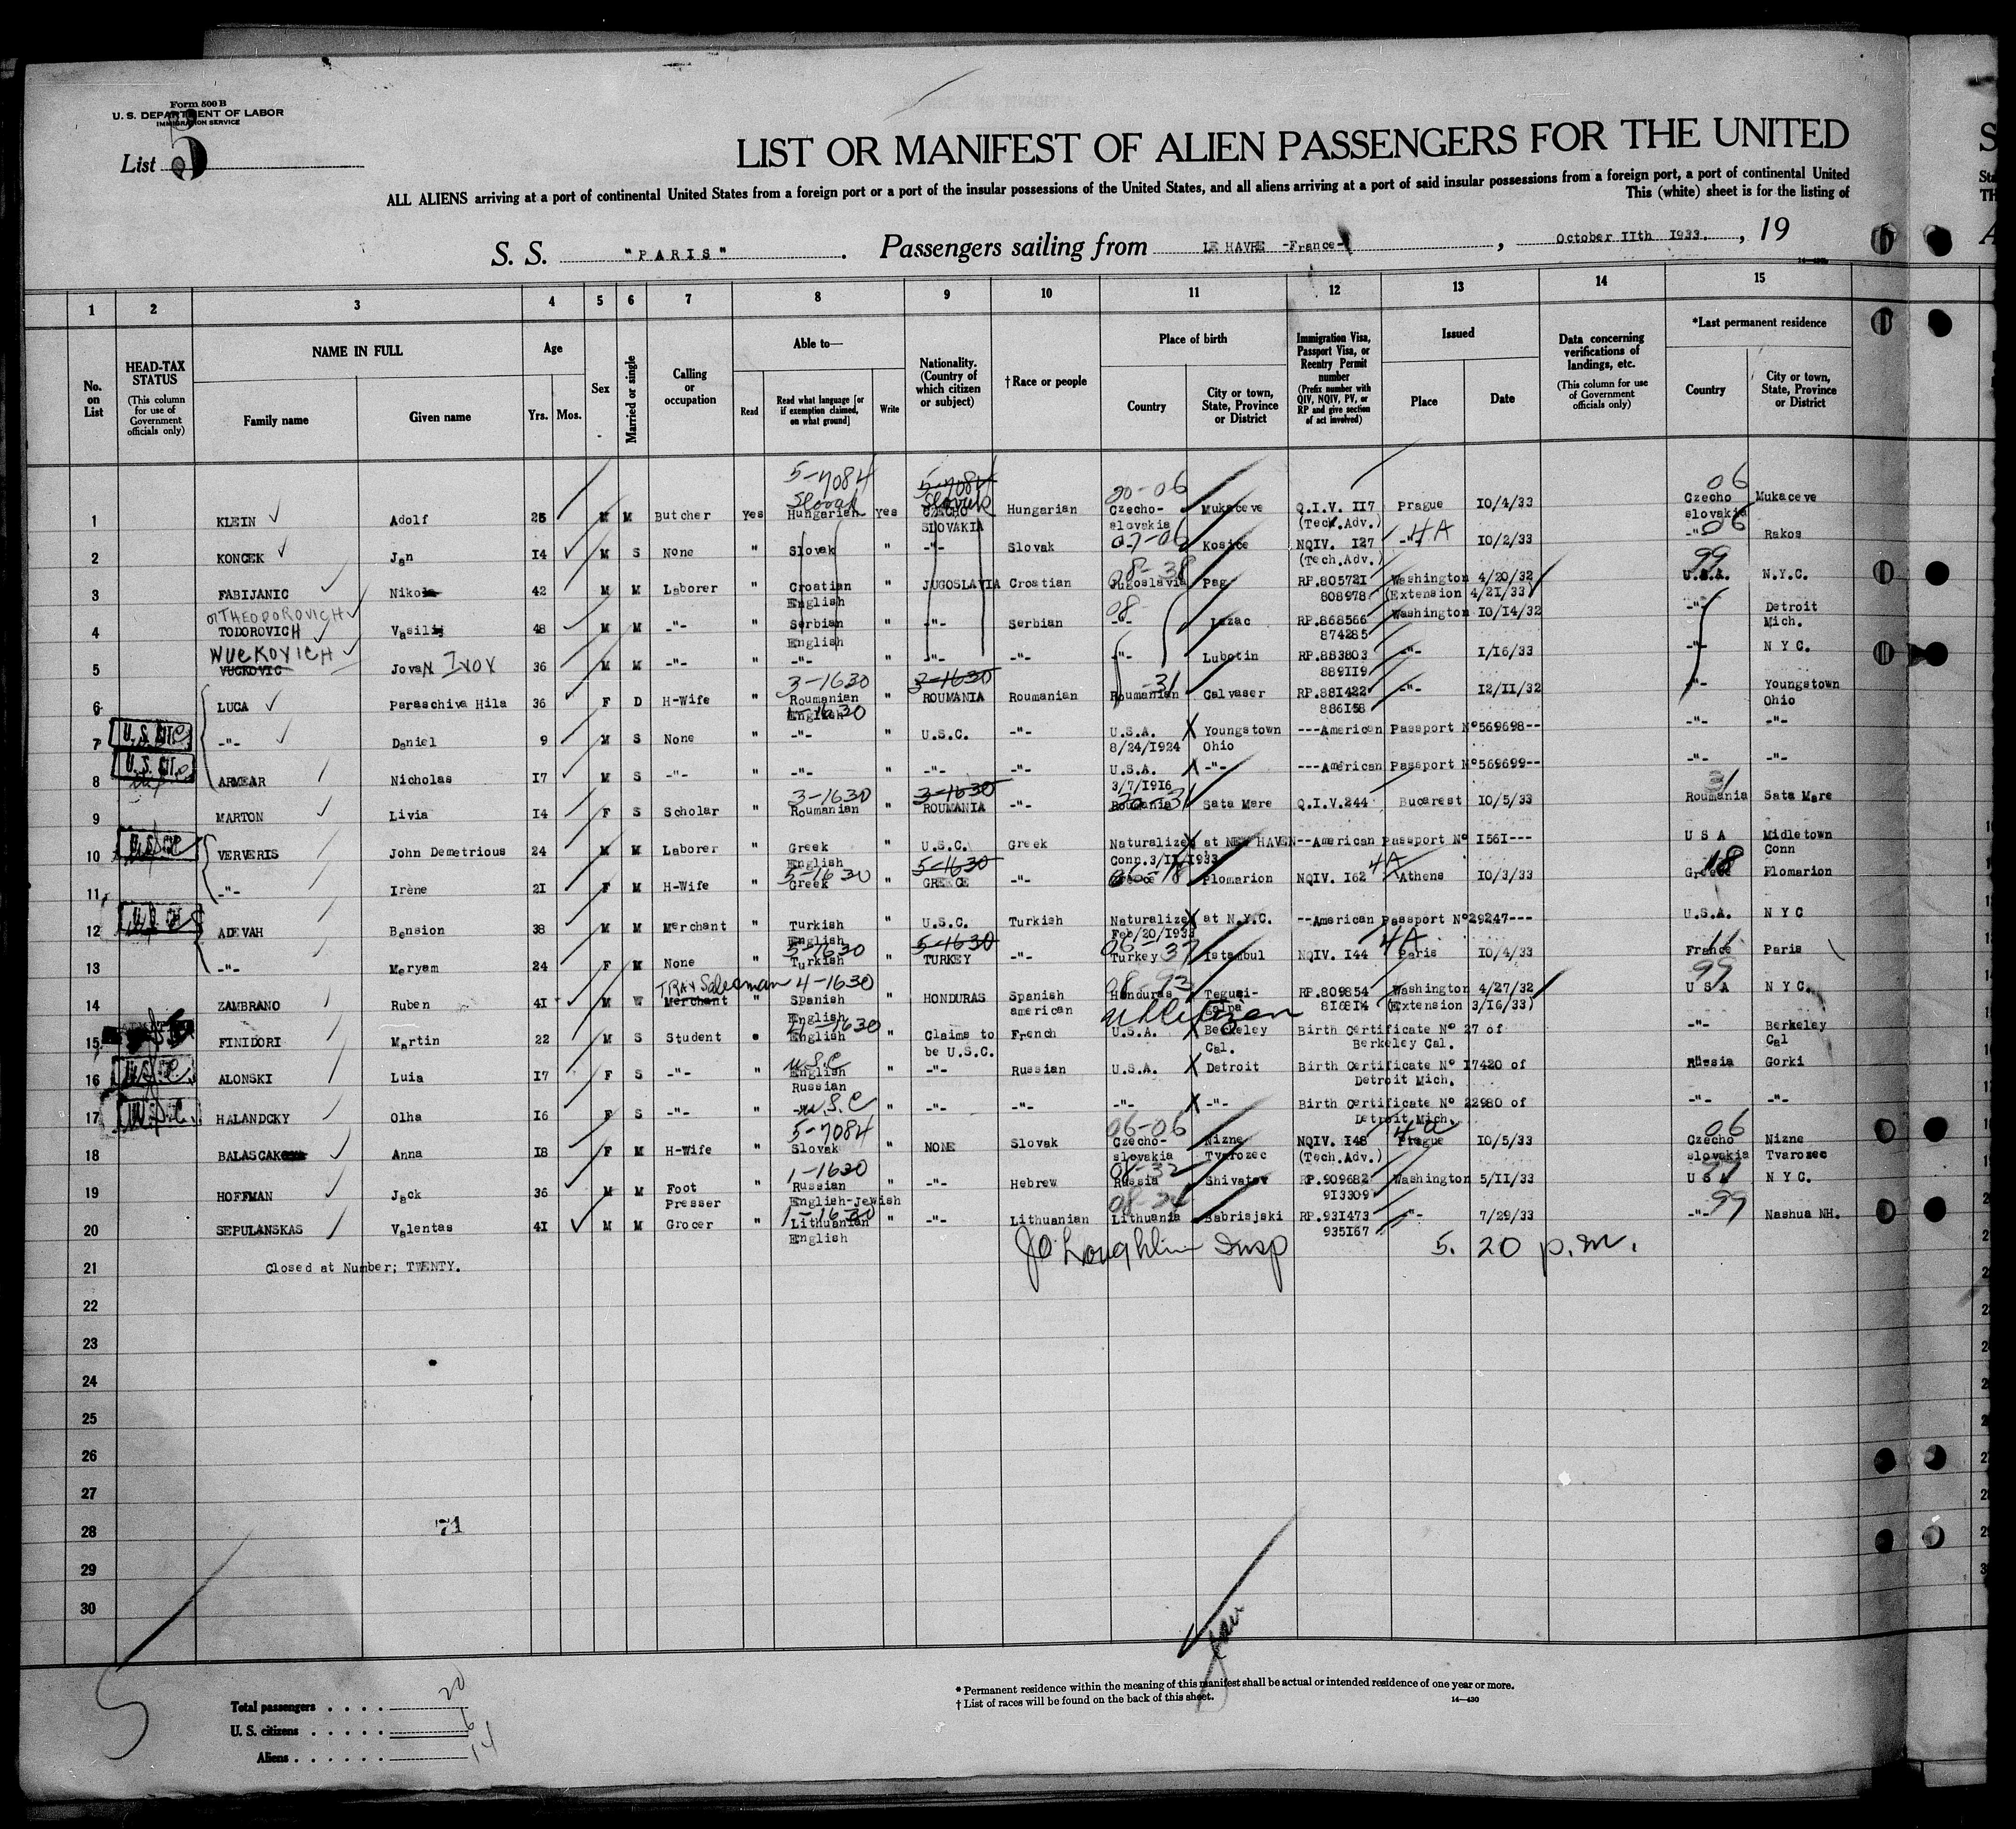 Form 500 B
U. S. DEPARTMENT OF LABOR
IMMIGRATION SERVICE
List 5
LIST OR MANIFEST OF ALIEN PASSENGERS FOR THE UNITED
ALL ALIENS arriving at a port of continental United States from a foreign port or a port of the insular possessions of the United States, and all aliens arriving at a port of said insular possessions from a foreign port, a port of continental United
This (white) sheet is for the listing of
S. S. "PARIS". Passengers sailing from LE HAVRE -France-, October 11th 1933., 19
1 2 3 4 5 6 7 8 9 10 11 12 13 14 15
No. on List
HEAD-TAX STATUS (This column for use of Government officials only)
NAME IN FULL Family name Given name
Age Yrs. Mos.
Sex
Married or single
Calling or occupation
Able to— Read Read what language [or if exemption claimed, on what ground] Write
Nationality. (Country of which citizen or subject)
†Race or people
Place of birth Country City or town, State, Province or District
Immigration Visa, Passport Visa, or Reentry Permit number (Prefix number with QIV, NQIV, PV, or RP and give section of act involved)
Issued Place Date
Data concerning verifications of landings, etc. (This column for use of Government officials only)
*Last permanent residence Country City or town, State, Province or District
5-7084 5-7084 20-06 06
Slovak Slovak
1 KLEIN Adolf 25 M M Butcher Yes Hungarian yes CZECHO SLOVAKIA Hungarian Czecho-slovakia Mukaceve Q.I.V. 117 (Tech.Adv.) Prague 10/4/33 Czecho slovakia Mukaceve
2 KONCEK Jan 14 M S None " Slovak " -"- Slovak 07-06 Kosice NQIV. 127 (Tech.Adv.) -"- 4A 10/2/33 -"- 06 Rakos
3 FABIJANIC Nikola 42 M M Laborer " Croatian English " JUGOSLAVIA Croatian 08-38 Jugoslavia Pag RP.805721 808978 Washington 4/20/32 (Extension 4/21/33) 99 U.S.A. N.Y.C.
or THEODOROVICH
4 TODOROVICH Vasilij 48 M M -"- " Serbian English " -"- Serbian 08- -"- Lazac RP.868566 874285 Washington 10/14/32 -"- Detroit Mich.
WUCKOVICH
5 VUCKOVIC Jovan Ivov 36 M M -"- " -"- " -"- -"- -"- Lubotin RP.883803 889119 -"- 1/16/33 -"- N Y C.
3-1630 3-1630 -31
6 LUCA Paraschiva Hila 36 F D H-Wife " Roumanian English " ROUMANIA Roumanian Roumanian Calvaser RP.881422 886158 -"- 12/11/32 -"- Youngstown Ohio
U. S. CIT.
7 -"- Daniel 9 M S None " -"- " U.S.C. -"- U.S.A. 8/24/1924 Youngstown Ohio ---American Passport N°569698-- -"- -"-
U. S. CIT.
8 ARMEAR Nicholas 17 M S -"- " -"- " -"- -"- U.S.A. 3/7/1916 -"- ---American Passport N°569699-- -"- -"-
3-1630 3-1630 31
9 MARTON Livia 14 F S Scholar " Roumanian " ROUMANIA -"- Roumania Sata Mare Q.I.V.244 Bucarest 10/5/33 Roumania Sata Mare
10 VERVERIS John Demetrious 24 M M Laborer " Greek English " U.S.C. Greek Naturalized at NEW HAVEN--American Passport N° 1561--- Conn.3/11/1933 U S A Midletown Conn
5-1630 5-1630 4A 18
11 -"- Irène 21 F M H-Wife " Greek " GREECE -"- Greece Plomarion NQIV. 162 Athens 10/3/33 Greece Plomarion
12 ADEVAH Bension 38 M M Merchant " Turkish English " U.S.C. Turkish Naturalized at N.Y.C. Feb/20/1933 --American Passport N°29247--- U.S.A. N Y C
5-1630 5-1630 06-37 4A 11
13 -"- Meryem 24 F M None " Turkish " TURKEY -"- Turkey Istanbul NQIV. 144 Paris 10/4/33 France Paris
TRAV Salesman 4-1630 08-93 99
14 ZAMBRANO Ruben 41 M W Merchant " Spanish English " HONDURAS Spanish american Honduras Tegucigalpa RP.809854 816814 Washington 4/27/32 (Extension 3/16/33) U S A N Y C.
US Citizen
15 FINIDORI Martin 22 M S Student " English " Claims to be U.S.C. French U.S.A. Berkeley Cal. Birth Certificate N° 27 of Berkeley Cal. -"- Berkeley Cal
U.S.C
16 ALONSKI Luia 17 F S -"- " English Russian " -"- Russian U.S.A. Detroit Birth Certificate N° 17420 of Detroit Mich. Russia Gorki
U.S.C
17 HALANDCKY Olha 16 F S -"- " -"- " -"- -"- -"- -"- Birth Certificate N° 22980 of Detroit Mich. -"- -"-
5-7084 06-06 06
18 BALASCAK Anna 18 F M H-Wife " Slovak " NONE Slovak Czecho-slovakia Nizne Tvarozec NQIV. 148 (Tech.Adv.) Prague 10/5/33 Czecho slovakia Nizne Tvarozec
1-1630 08-32
19 HOFFMAN Jack 36 M M Foot Presser " Russian English-Jewish " -"- Hebrew Russia Shivatov RP.909682 913309 Washington 5/11/33 U S A N Y C.
1-1630 08-24 99
20 SEPULANSKAS Valentas 41 M M Grocer " Lithuanian English " -"- Lithuanian Lithuania Babriajski RP.931473 935167 -"- 7/29/33 -"- Nashua NH.
JO Loughlin Insp 5. 20 p.m.
21 Closed at Number; TWENTY.
22
23
24
25
26
27
28 71
29
30
Total passengers 20
U. S. citizens 6
Aliens 14
* Permanent residence within the meaning of this manifest shall be actual or intended residence of one year or more.
† List of races will be found on the back of this sheet.
14—430